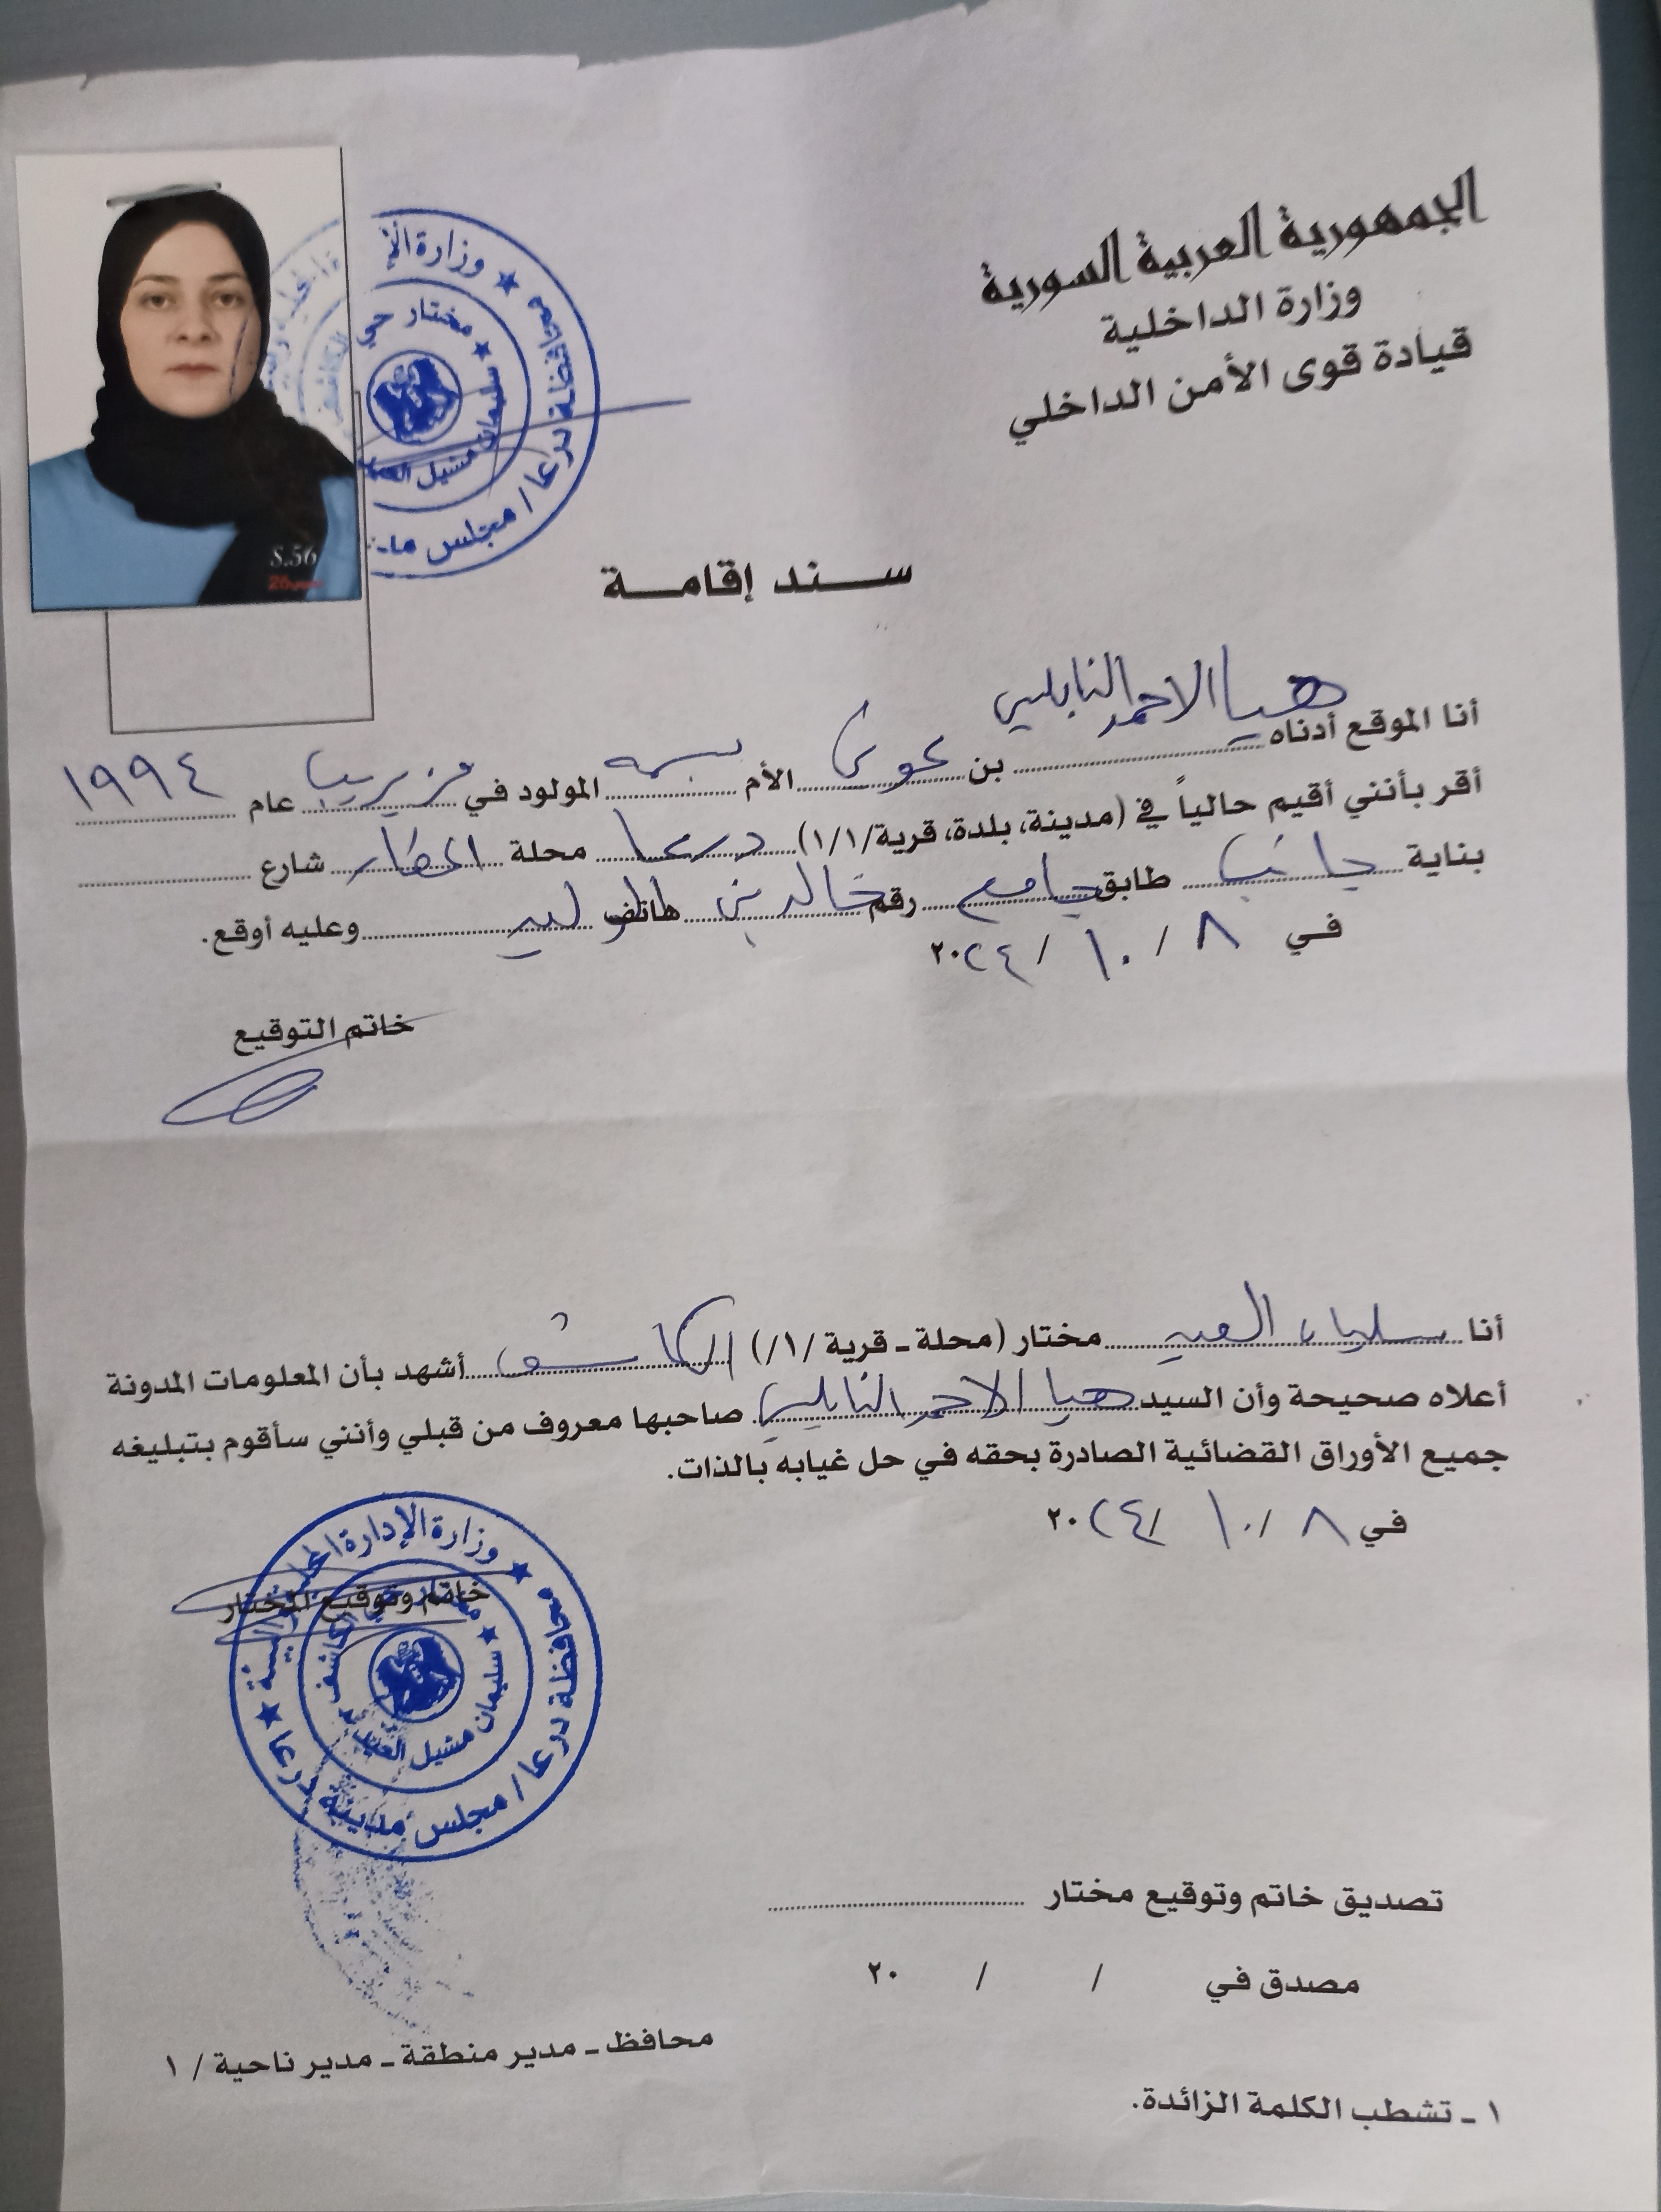 الجمهورية العربية السورية
وزارة الداخلية
قيادة قوى الأمن الداخلي
وزارة الإ
محافظة درعا / مجلس مد
مختار حي
سليمان مشيل
S.56
سند إقامة
أنا الموقع أدناه هيا الاحمد النابلسي
بن عوض الأم بسمه المولود في مزيريب عام ١٩٩٤
أقر بأنني أقيم حالياً في (مدينة، بلدة، قرية/١/١) درعا محلة المطار شارع
بناية جانب طابق جامع رقم خالد بن هاتف الوليد وعليه أوقع.
في ٨ / ١٠ / ٢٠٢٤
خاتم التوقيع
أنا سليمان العيد مختار (محلة ـ قرية /١/) الكاشف أشهد بأن المعلومات المدونة
أعلاه صحيحة وأن السيد هيا الاحمد النابلسي صاحبها معروف من قبلي وأنني سأقوم بتبليغه
جميع الأوراق القضائية الصادرة بحقه في حل غيابه بالذات.
في ٨ / ١٠ / ٢٠٢٤
خاتم وتوقيع المختار
وزارة الإدارة المحلية والبيئة
محافظة درعا / مجلس مدينة درعا
مختار حي الكاشف
سليمان مشيل العيد
تصديق خاتم وتوقيع مختار
مصدق في / / ٢٠
محافظ ـ مدير منطقة ـ مدير ناحية / ١
١ ـ تشطب الكلمة الزائدة.